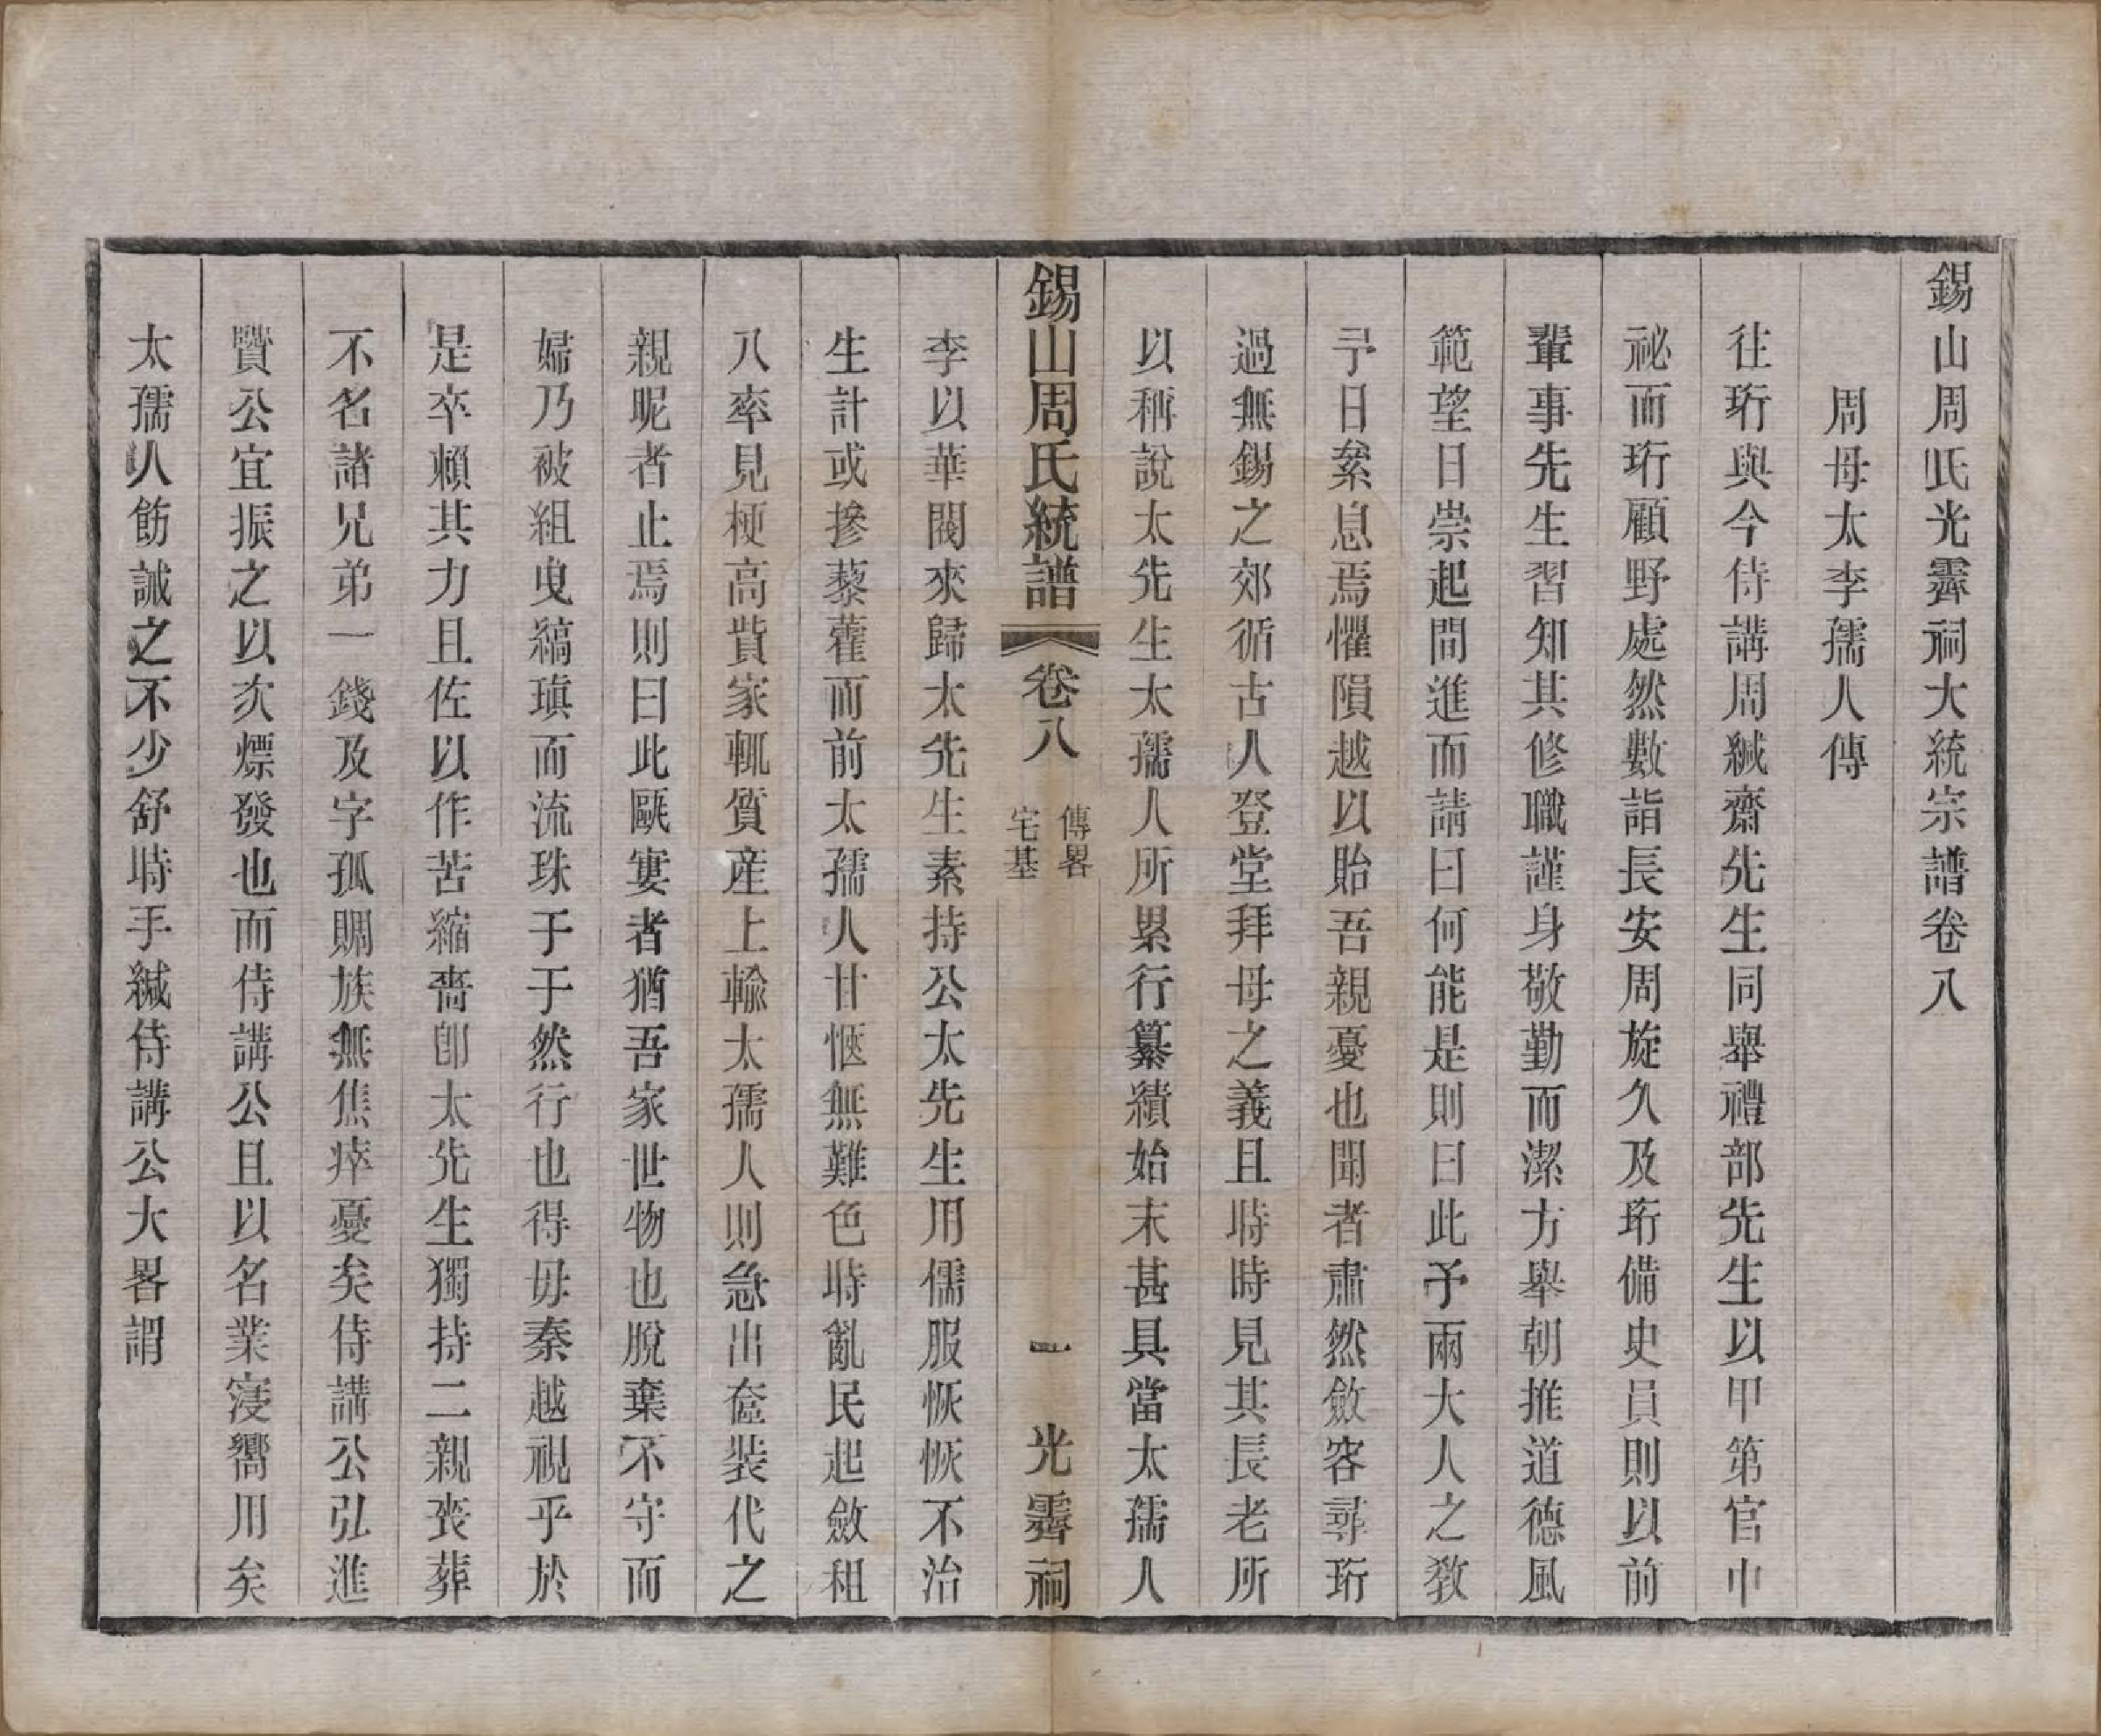 錫山周氏光霽祠大統宗譜卷八
周母太李孺人傳
往珩與今侍講周緘齋先生同舉禮部先生以甲第官中
祕而珩顧野處然數詣長安周旋久及珩備史員則以前
輩事先生習知其修職謹身敬勤而潔方舉朝推道德風
範望日崇起間進而請曰何能是則曰此予兩大人之教
予日絫息焉懼隕越以貽吾親憂也聞者肅然斂容尋珩
過無錫之郊循古人登堂拜母之義且時時見其長老所
以稱說太先生太孺人所累行纂績始末甚具當太孺人
錫山周氏統譜 卷八 傳畧 宅基 一 光霽祠
李以華閥來歸太先生素持公太先生用儒服恢恢不治
生計或摻藜藿而前太孺人甘愜無難色時亂民起斂租
八率見梗高貲家輒質產上輸太孺人則急出奩裝代之
親昵者止焉則曰此甌寠者猶吾家世物也脫棄不守而
婦乃被組曳縞瑱而流珠于于然行也得毋秦越視乎於
是卒賴其力且佐以作苦縮嗇卽太先生獨持二親喪葬
不名諸兄弟一錢及字孤賙族無焦瘁憂矣侍講公弘進
贒公宜振之以次熛發也而侍講公且以名業寖嚮用矣
太孺人飭誡之不少舒時手緘侍講公大畧謂